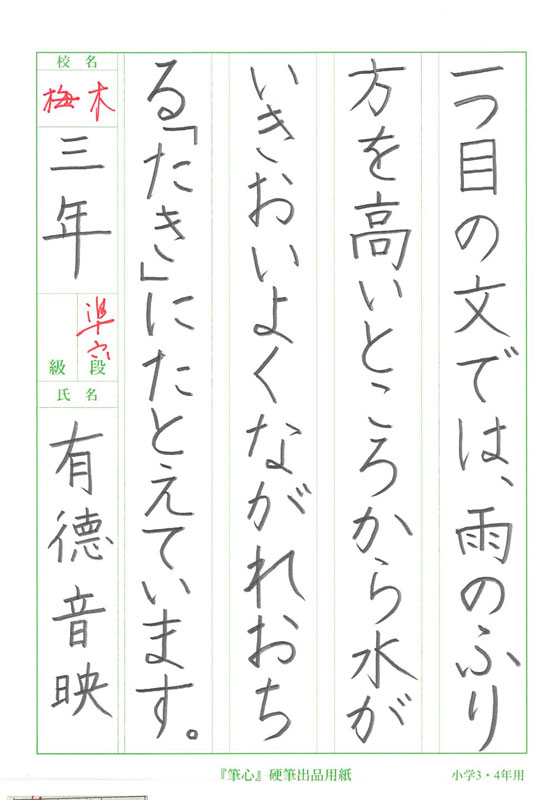 一つ目の文では、雨のふり
方を高いところから水が
いきおいよくながれおち
る「たき」にたとえています。
校名
梅木
三年
準六段
級
氏名
有德音映
『筆心』硬筆出品用紙
小学3・4年用